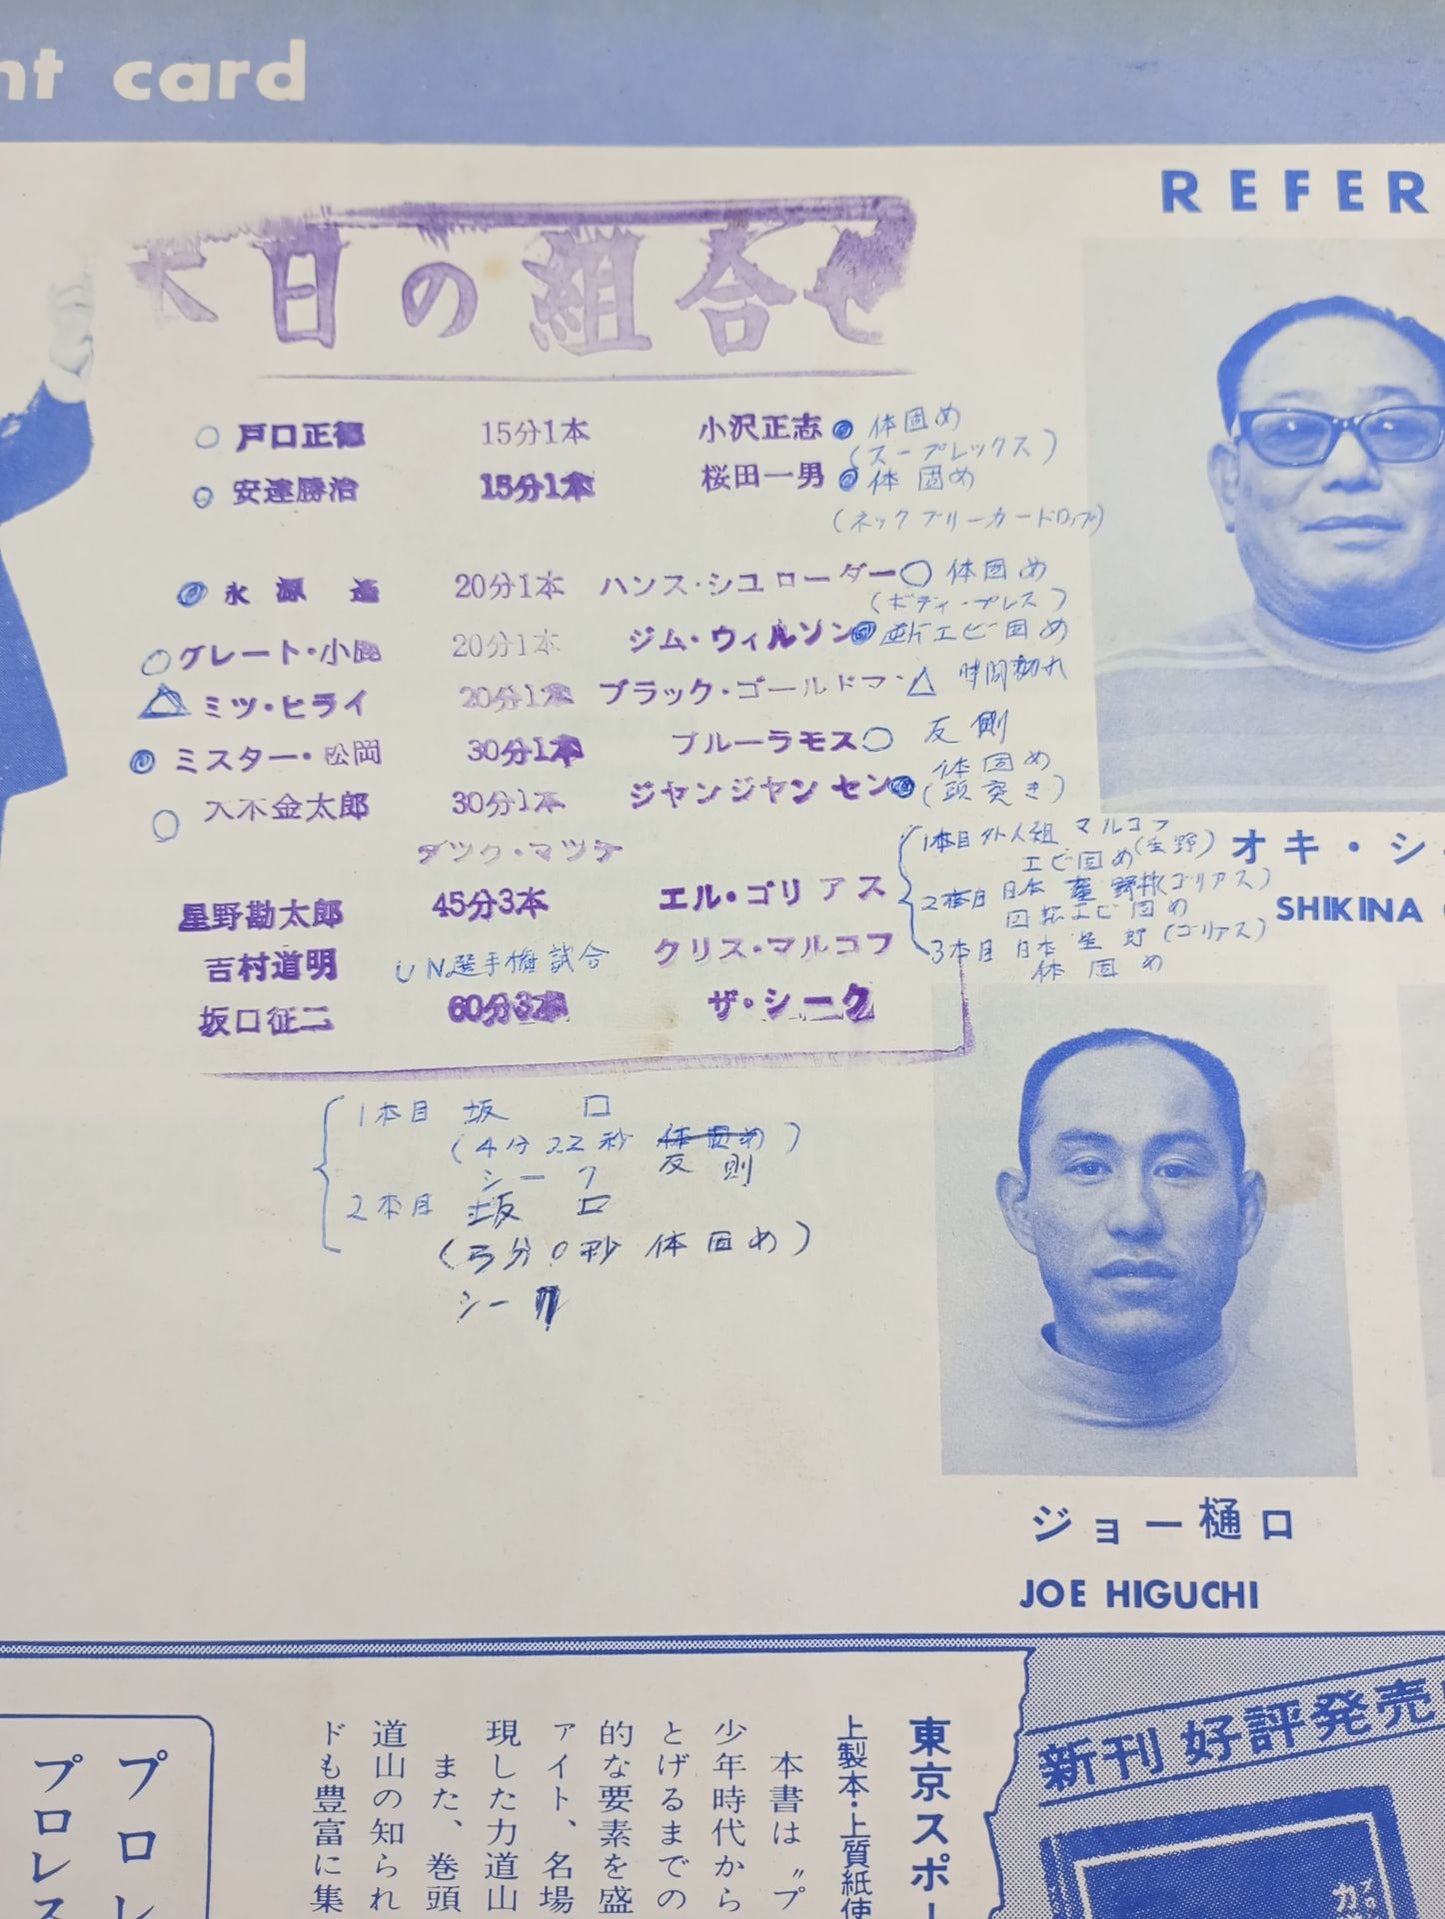 nt card
REFER
本日の組合せ
○ 戸口正徳 15分1本 小沢正志 ◎ 体固め
(スープレックス)
○ 安達勝治 15分1本 桜田一男 ◎ 体固め
(ネックブリーカードロップ)
◎ 永源遥 20分1本 ハンス・シュローダー ○ 体固め
(ボディ・プレス)
○ グレート・小鹿 20分1本 ジム・ウィルソン ◎ 逆片エビ固め
△ ミツ・ヒライ 20分1本 ブラック・ゴールドマン △ 時間切れ
◎ ミスター・松岡 30分1本 ブルーラモス ○ 反則
体固め
○ 大木金太郎 30分1本 ジャンジャンセン ◎ (頭突き)
タッグ・マッチ
星野勘太郎 45分3本 エル・ゴリアス
吉村道明 UN選手権試合 クリス・マルコフ
坂口征二 60分3本 ザ・シーク
1本目 外人組 マルコフ
エビ固め (星野)
2本目 日本 星野 (ゴリアス)
回転エビ固め
3本目 日本 星野 (ゴリアス)
体固め
オキ・シ
SHIKINA
1本目 坂口
(4分22秒 体固め)
シーク 反則
2本目 坂口
(3分0秒 体固め)
シーク
ジョー樋口
JOE HIGUCHI
新刊 好評発売
東京スポー
上製本・上質紙使
本書は〃プ
少年時代から
とげるまでの
的な要素を盛
ァイト、名場
現した力道山
また、巻頭
道山の知られ
ドも豊富に集
プロレ
プロレス